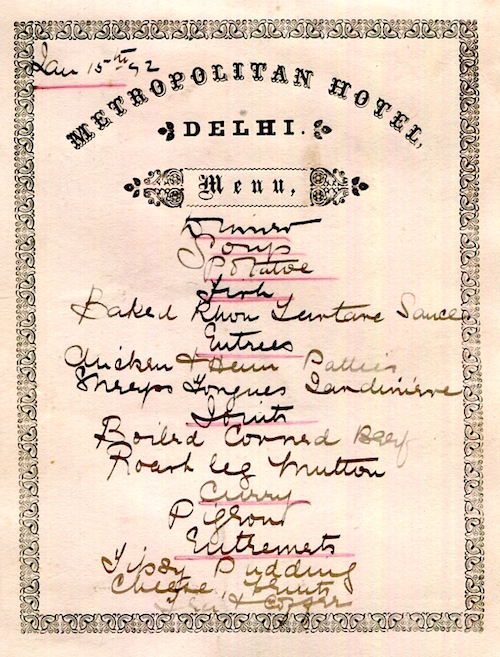 Jan 15th 92
METROPOLITAN HOTEL,
DELHI.
Menu,
Dinner
Soup
Potatoe
Fish
Baked Rhou Tartare Sauce
Entrees
Chicken & Ham Patties
Sheeps Tongues Jardiniere
Joints
Boiled Corned Beef
Roast Leg Mutton
Curry
Pigeon
Entremets
Tipsy Pudding
Cheese Fruits
Tea & Coffee